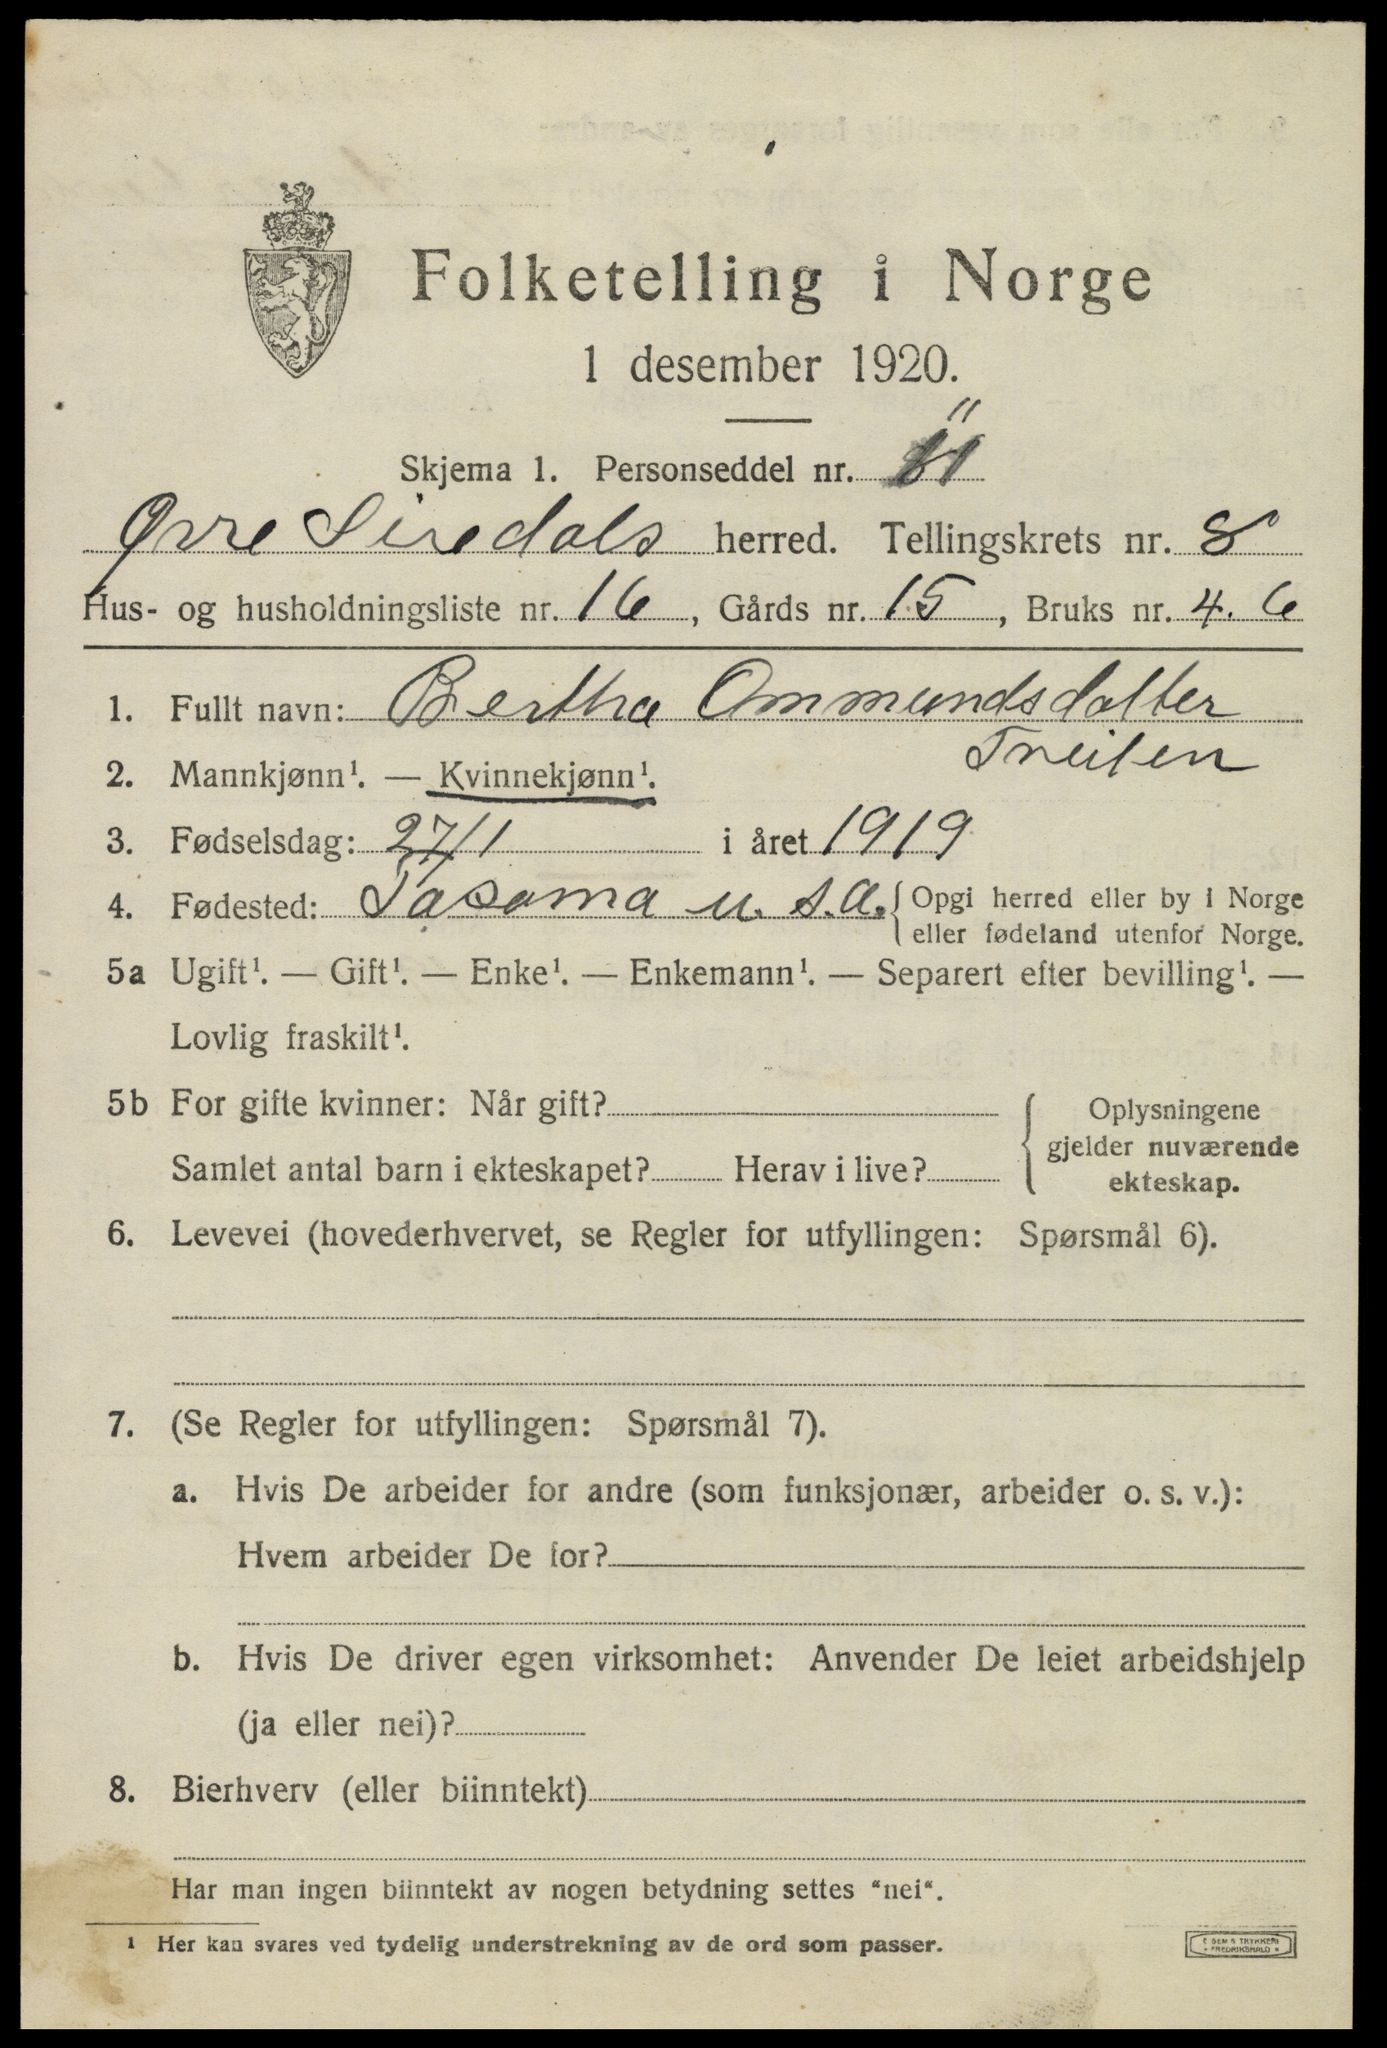 Folketelling i Norge
1 desember 1920.
11
Skjema 1. Personseddel nr.
Øvre Siredals herred. Tellingskrets nr. 8
Hus- og husholdningsliste nr. 16, Gårds nr. 15, Bruks nr. 4. 6
1. Fullt navn: Bertha Ommundsdatter
Treiten
2. Mannkjønn¹. — Kvinnekjønn¹.
3. Fødselsdag: 27/1 i året 1919
4. Fødested: Tacoma u. s. a. { Opgi herred eller by i Norge
eller fødeland utenfor Norge.
5a Ugift¹. — Gift¹. — Enke¹. — Enkemann¹. — Separert efter bevilling¹. —
Lovlig fraskilt¹.
5b For gifte kvinner: Når gift?
Samlet antal barn i ekteskapet? Herav i live?
Oplysningene
gjelder nuværende
ekteskap.
6. Levevei (hovederhvervet, se Regler for utfyllingen: Spørsmål 6).
7. (Se Regler for utfyllingen: Spørsmål 7).
a. Hvis De arbeider for andre (som funksjonær, arbeider o. s. v.):
Hvem arbeider De for?
b. Hvis De driver egen virksomhet: Anvender De leiet arbeidshjelp
(ja eller nei)?
8. Bierhverv (eller biinntekt)
Har man ingen biinntekt av nogen betydning settes "nei".
¹ Her kan svares ved tydelig understrekning av de ord som passer.
E SEM S TRYKKERI
FREDRIKSHALD